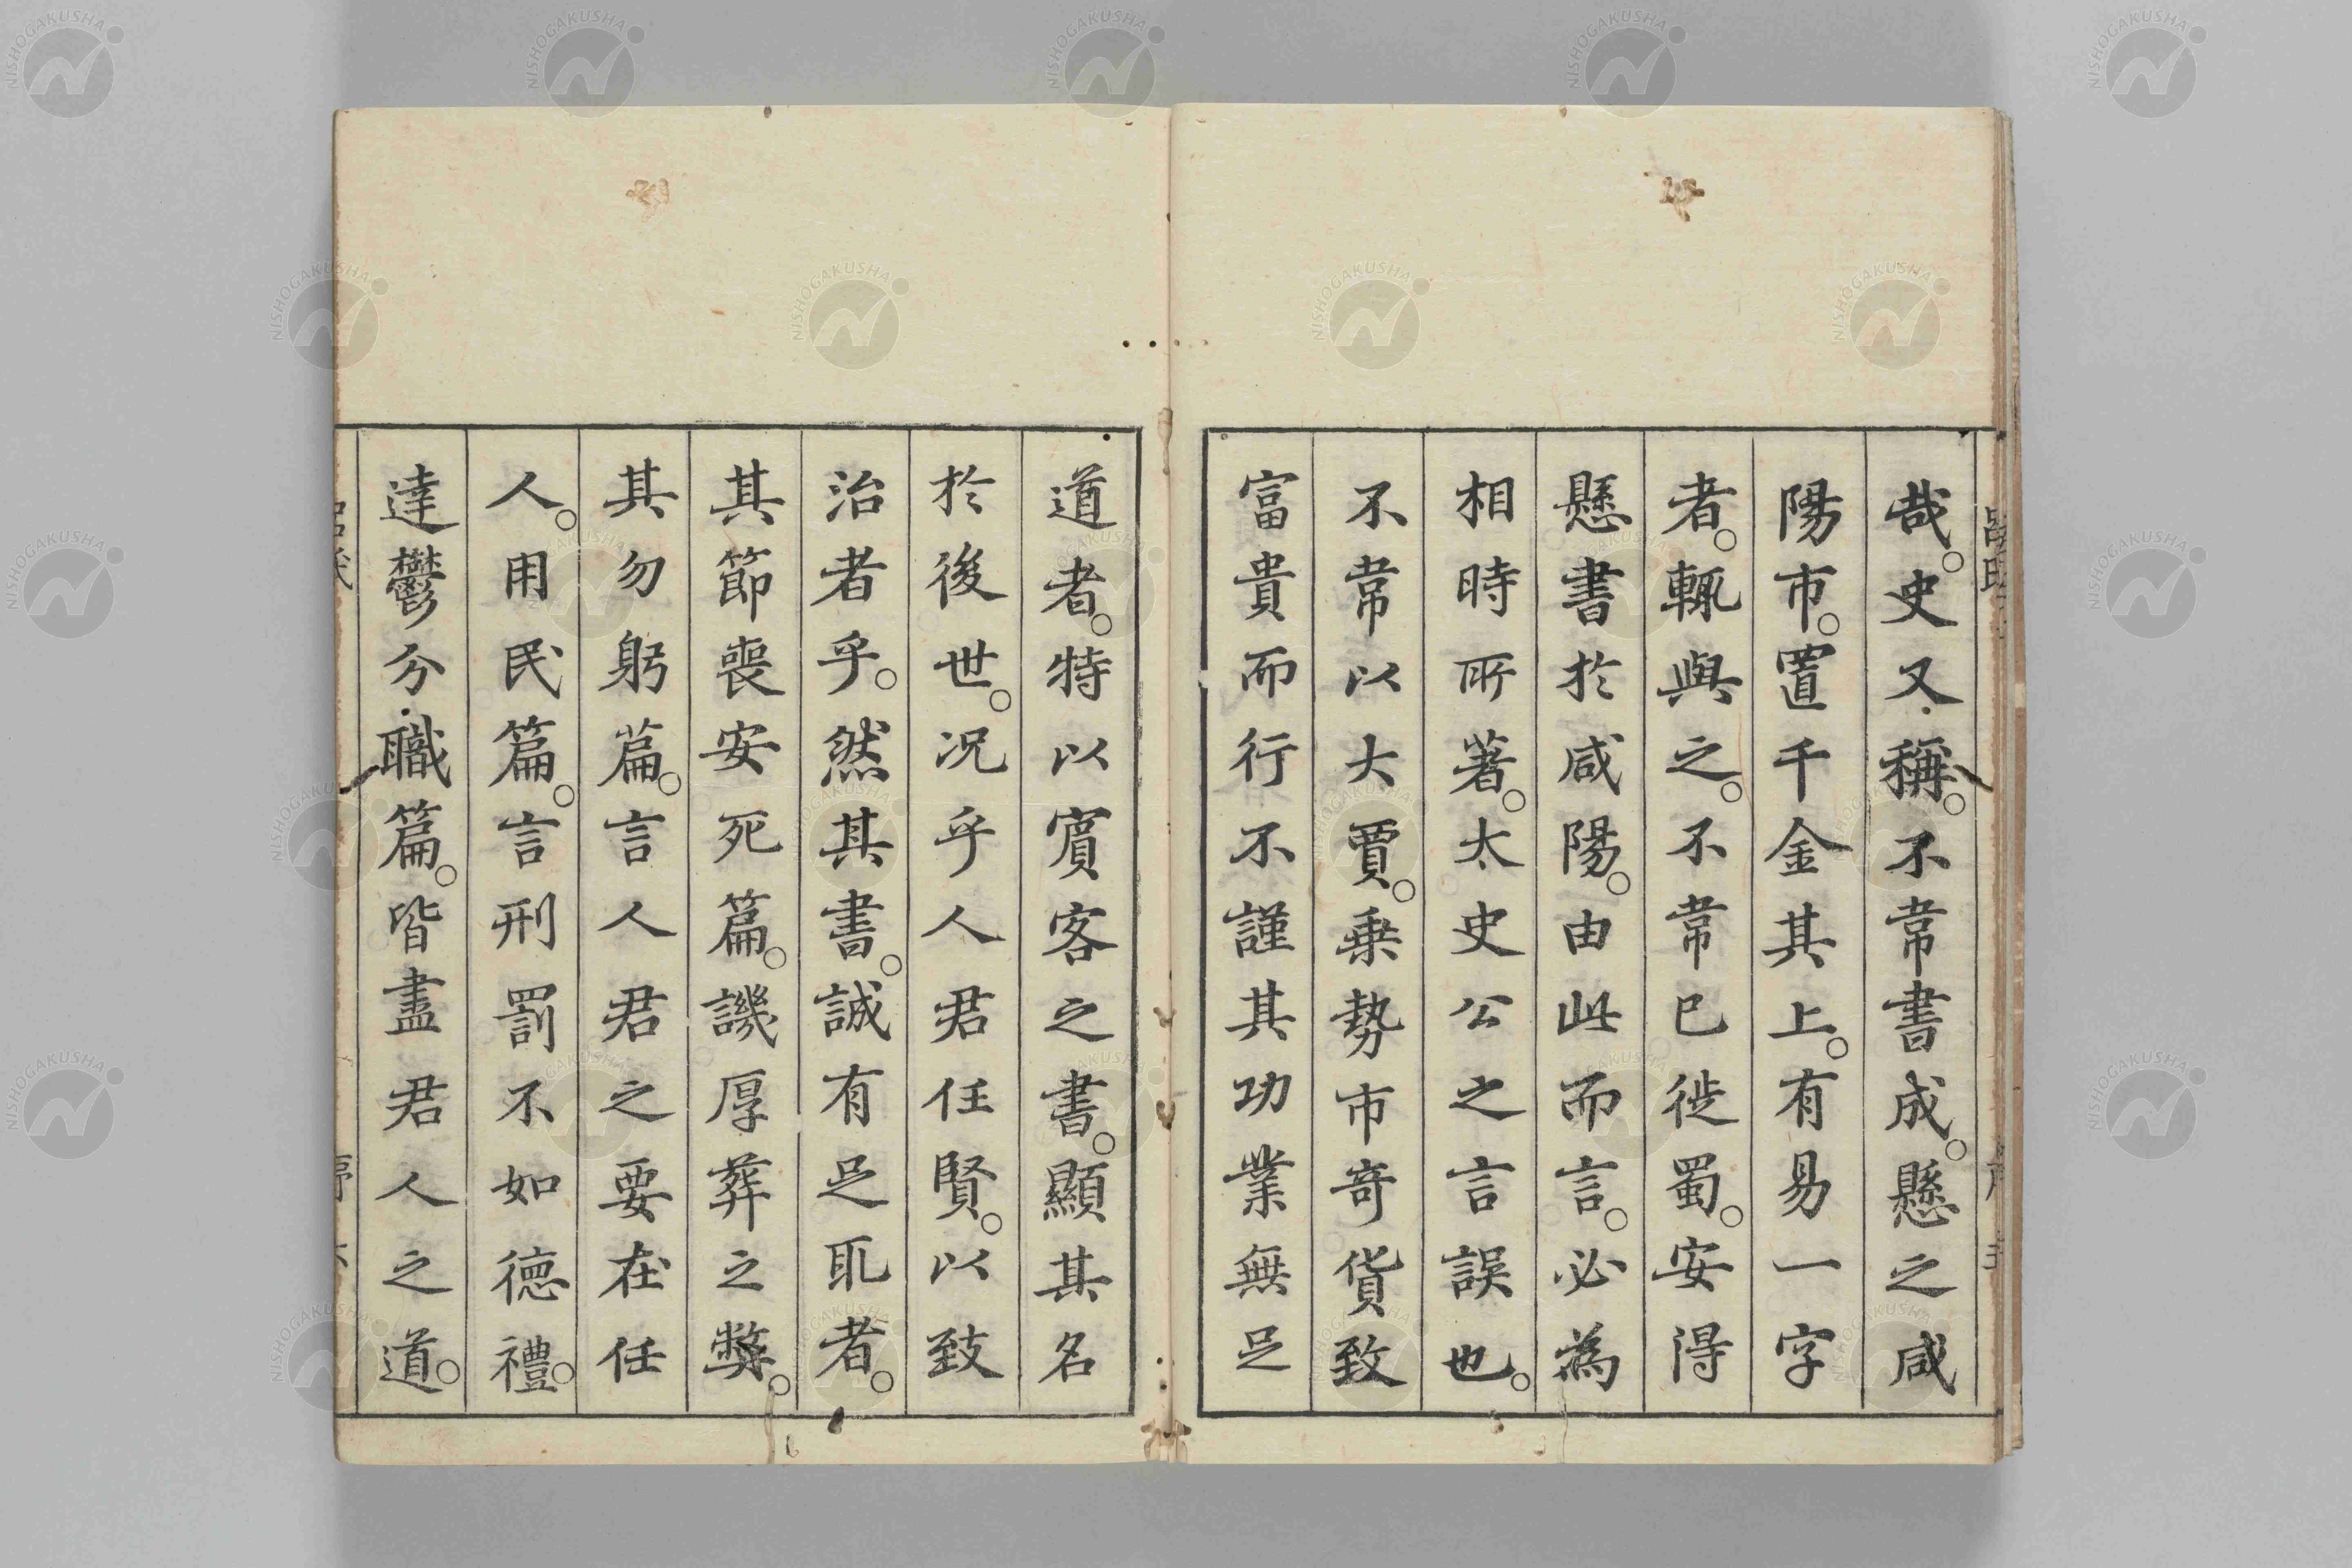 哉。史又稱。不常書成。懸之咸
陽市。置千金其上。有易一字
者。輒與之。不常已徙蜀。安得
懸書於咸陽。由此而言。必為
相時所著。太史公之言誤也。
不常以大賈。乗勢市奇貨致
富貴而行不謹其功業無足
道者。特以賓客之書。顯其名
於後世。况乎人君任賢。以致
治者乎。然其書。誠有足取者。
其節喪安死篇。譏厚葬之弊。
其勿躬篇。言人君之要在任
人。用民篇。言刑罰不如德禮。
達鬱分職篇。皆盡君人之道。
NISHOGAKUSHA